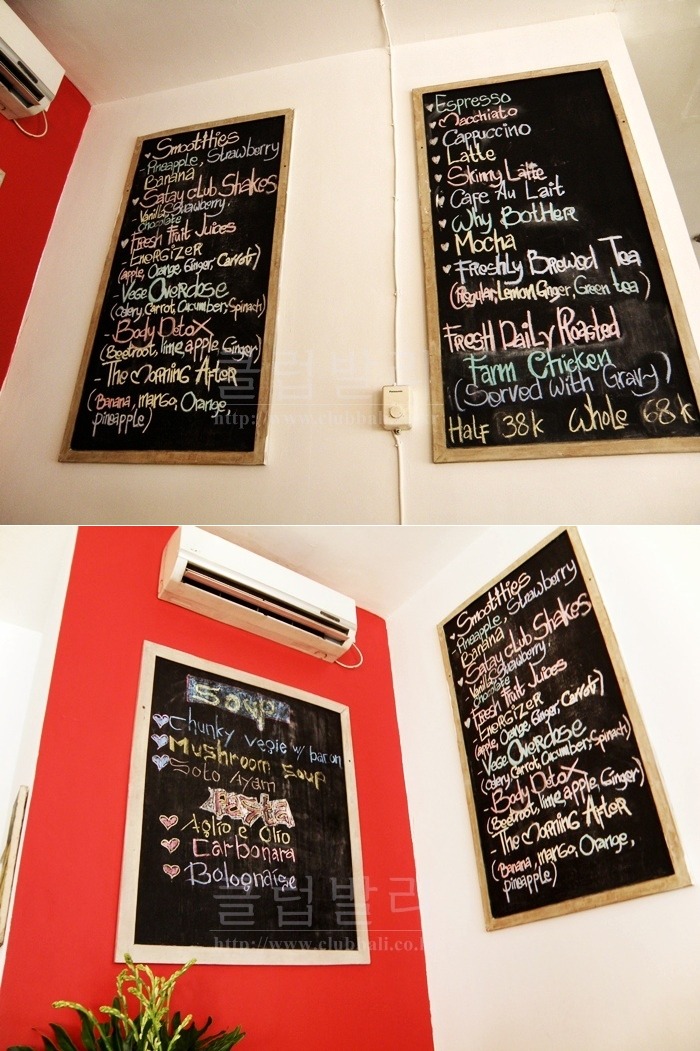 ♥ Smootthies
- Pineapple, Strawberry
Banana
♥ Satay club Shakes
- Vanilla, Strawberry,
Chocolate
♥ Fresh Fruit Juices
- Energizer
(apple, Orange, Ginger, Carrot)
- Vege Overdose
(Celery, Carrot, Cucumber, Spinach)
- Body Detox
(Beetroot, lime, apple, Ginger)
- The Morning After
(Banana, mango, Orange,
pineapple)
♥ Espresso
♥ Macchiato
♥ Cappuccino
♥ Latte
♥ Skinny Latte
♥ Cafe Au Lait
♥ Why Bother
♥ Mocha
♥ Freshly Brewed Tea
(Regular, Lemon Ginger, Green tea)
Fresh Daily Roasted
Farm Chicken
(Served with Gravy)
Half 38k Whole 68k
클럽발리
http://www.clubbali.co.kr
Soup
♥ Chunky vegie w/ bacon
♥ Mushroom soup
♥ Soto Ayam
Pasta
♥ Aglio e Olio
♥ Carbonara
♥ Bolognaise
♥ Smootthies
- Pineapple, Strawberry
Banana
♥ Satay club Shakes
- Vanilla, Strawberry,
Chocolate
♥ Fresh Fruit Juices
- Energizer
(apple, Orange, Ginger, Carrot)
- Vege Overdose
(Celery, Carrot, Cucumber, Spinach)
- Body Detox
(Beetroot, lime, apple, Ginger)
- The Morning After
(Banana, mango, Orange,
pineapple)
클럽발리
http://www.clubbali.co.kr